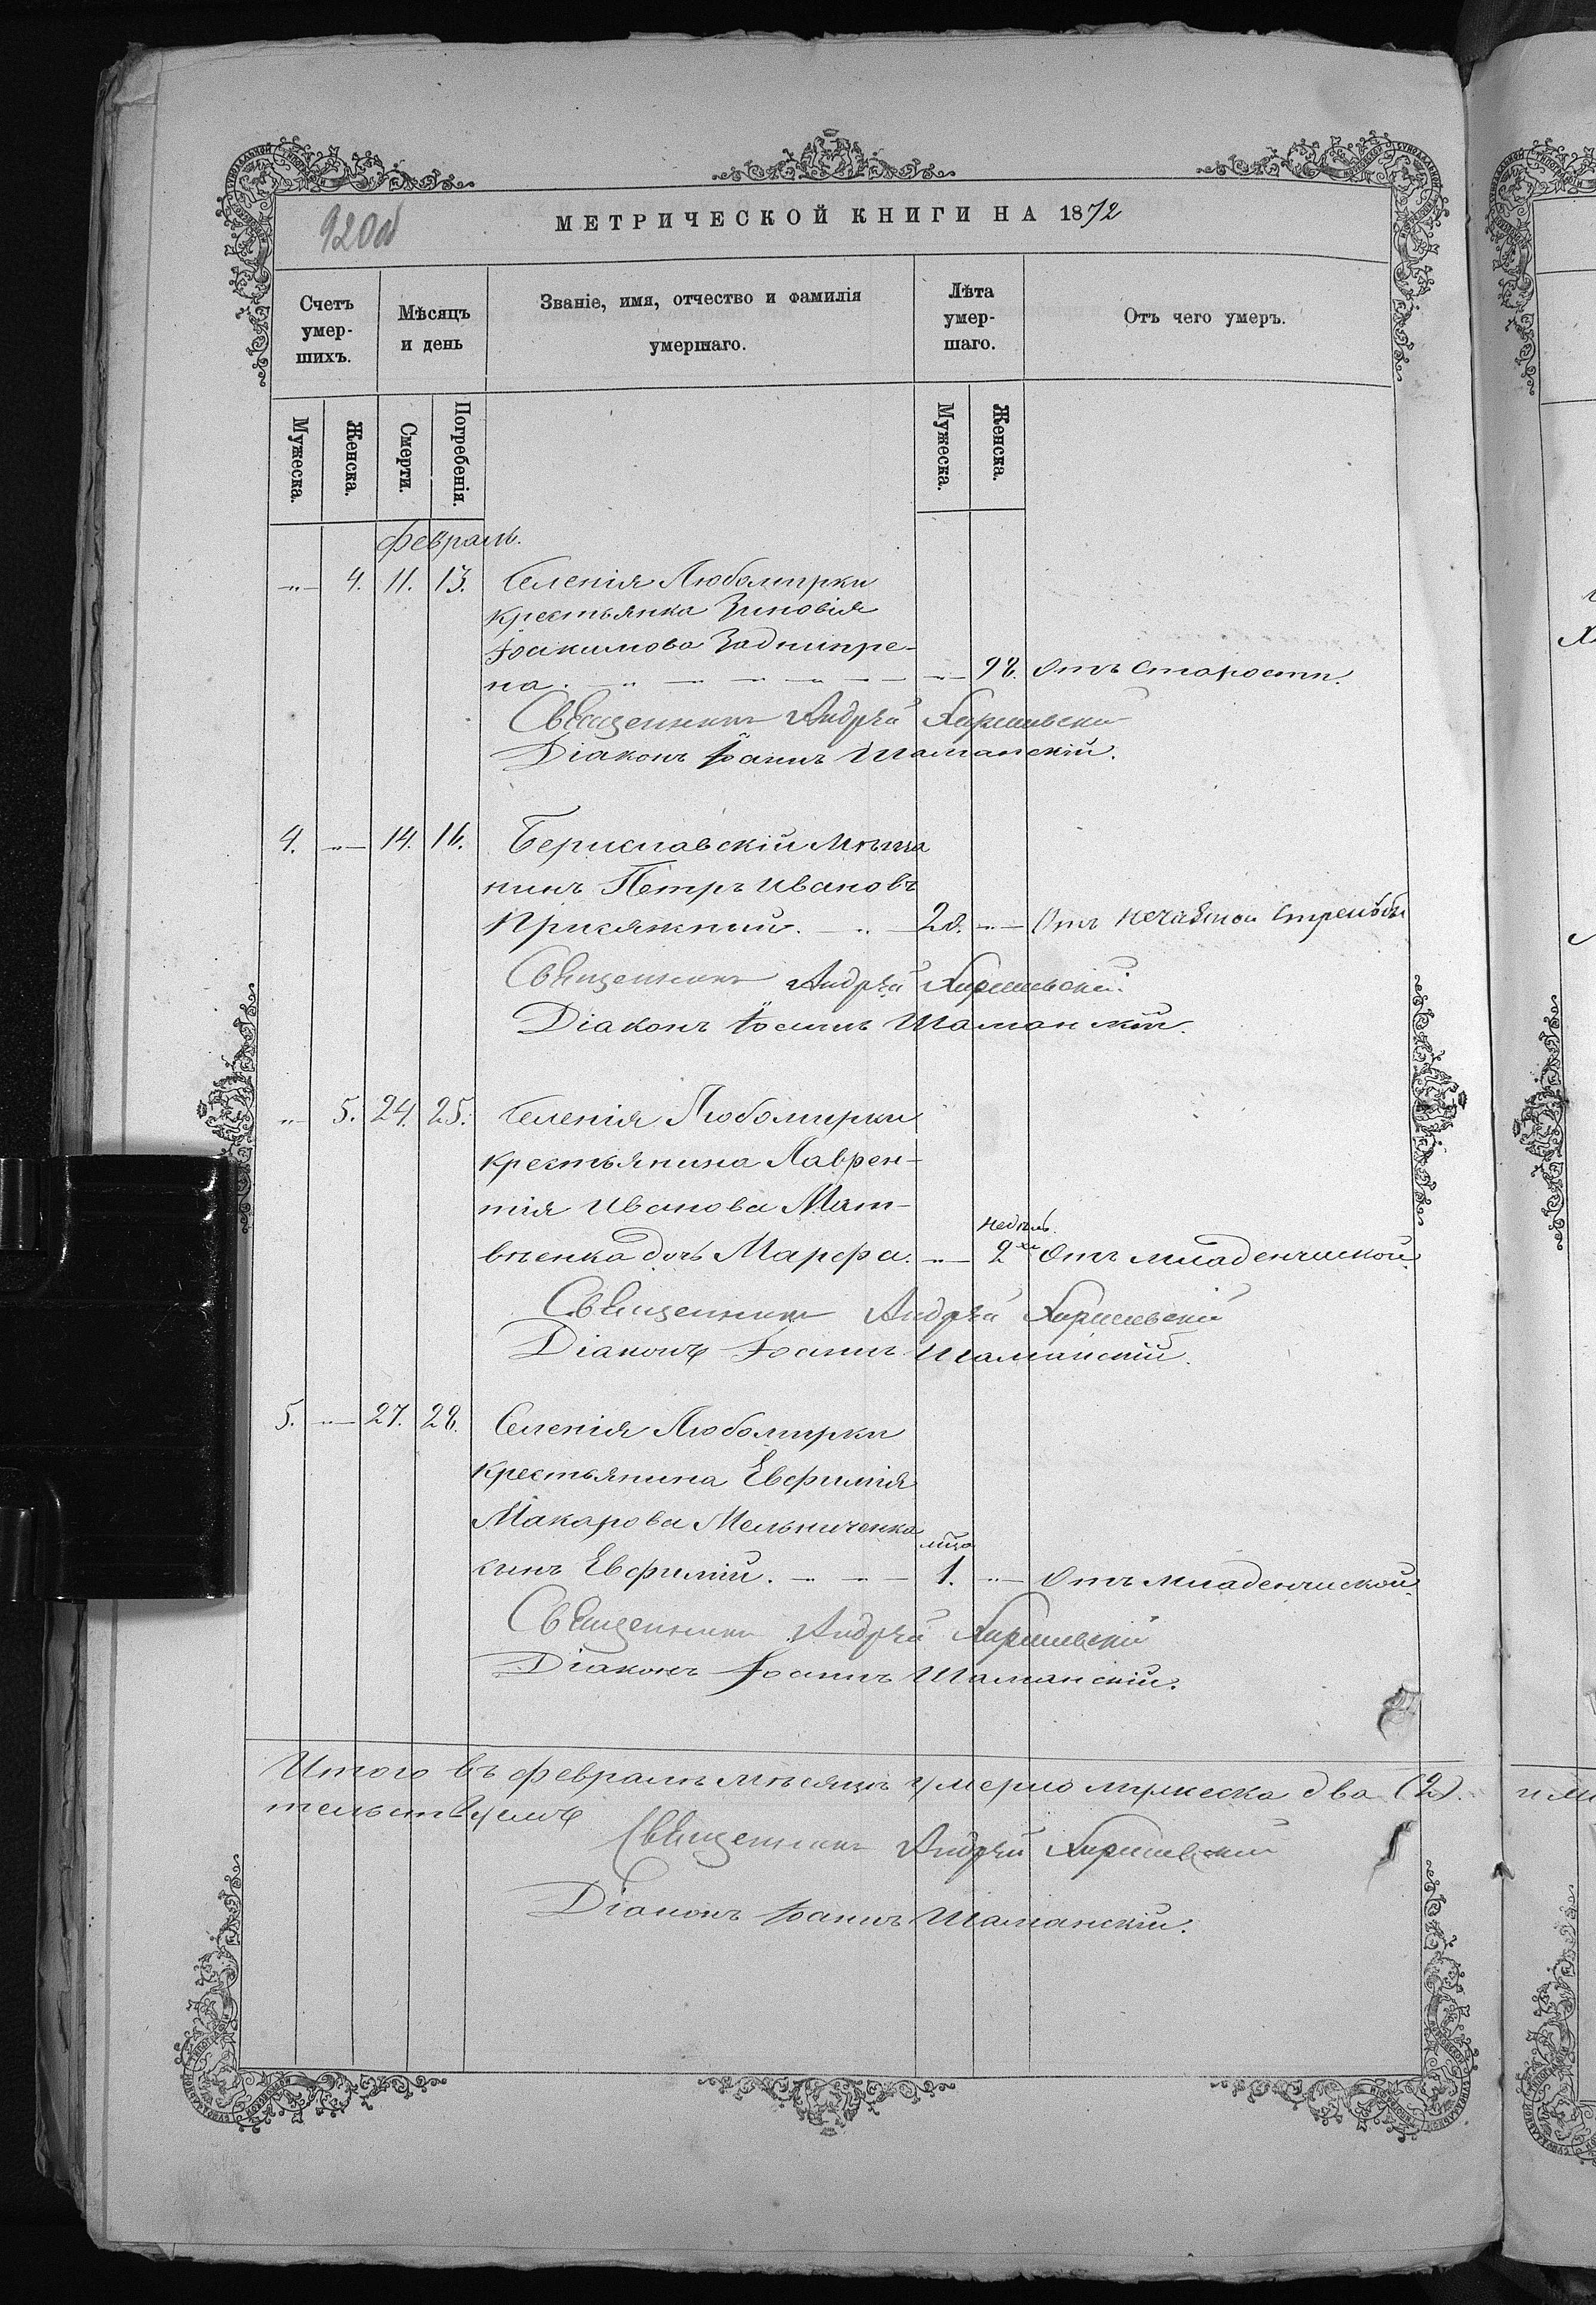 920об
МЕТРИЧЕСКОЙ КНИГИ НА 1872
Счетъ умер- шихъ.
Мѣсяцъ и день
Званіе, имя, отчество и фамилія умершаго.
Лѣта умер- шаго.
Отъ чего умеръ.
Мужеска. Женска. Смерти. Погребенія. Мужеска. Женска.
Февраль.
-"- 4. 11. 13. Селенія Любомирки
крестьянка Зиновія
Іоакимова Заднипре-
на. -"- 98. Отъ старости.
Священникъ Андрей
Діаконъ Іоаннъ Шаманскій.
4. -"- 14. 16. Бериславскій мѣща
нинъ Петръ Ивановъ
Присяжный. -"- 28. -"- Отъ нечаянной стрельбы
Священникъ Андрей
Діаконъ Іоаннъ Шаманскій.
-"- 5. 24. 25. Селенія Любомирки
крестьянина Лаврен-
тія Иванова Мат-
недѣль
вѣенка дочь Марфа. -"- 2хъ Отъ младенческой.
Священникъ Андрей
Діаконъ Іоаннъ Шаманскій.
5. -"- 27. 28. Селенія Любомирки
крестьянина Евфимія
Макарова Мельниченка
сынъ Евфимій. -"- 1. -"- Отъ младенческой.
Священникъ Андрей
Діаконъ Іоаннъ Шаманскій.
Итого въ февралѣ мѣсяцѣ умерло мужеска два (2).
тельствуемъ
Священникъ Андрей
Діаконъ Іоаннъ Шаманскій.